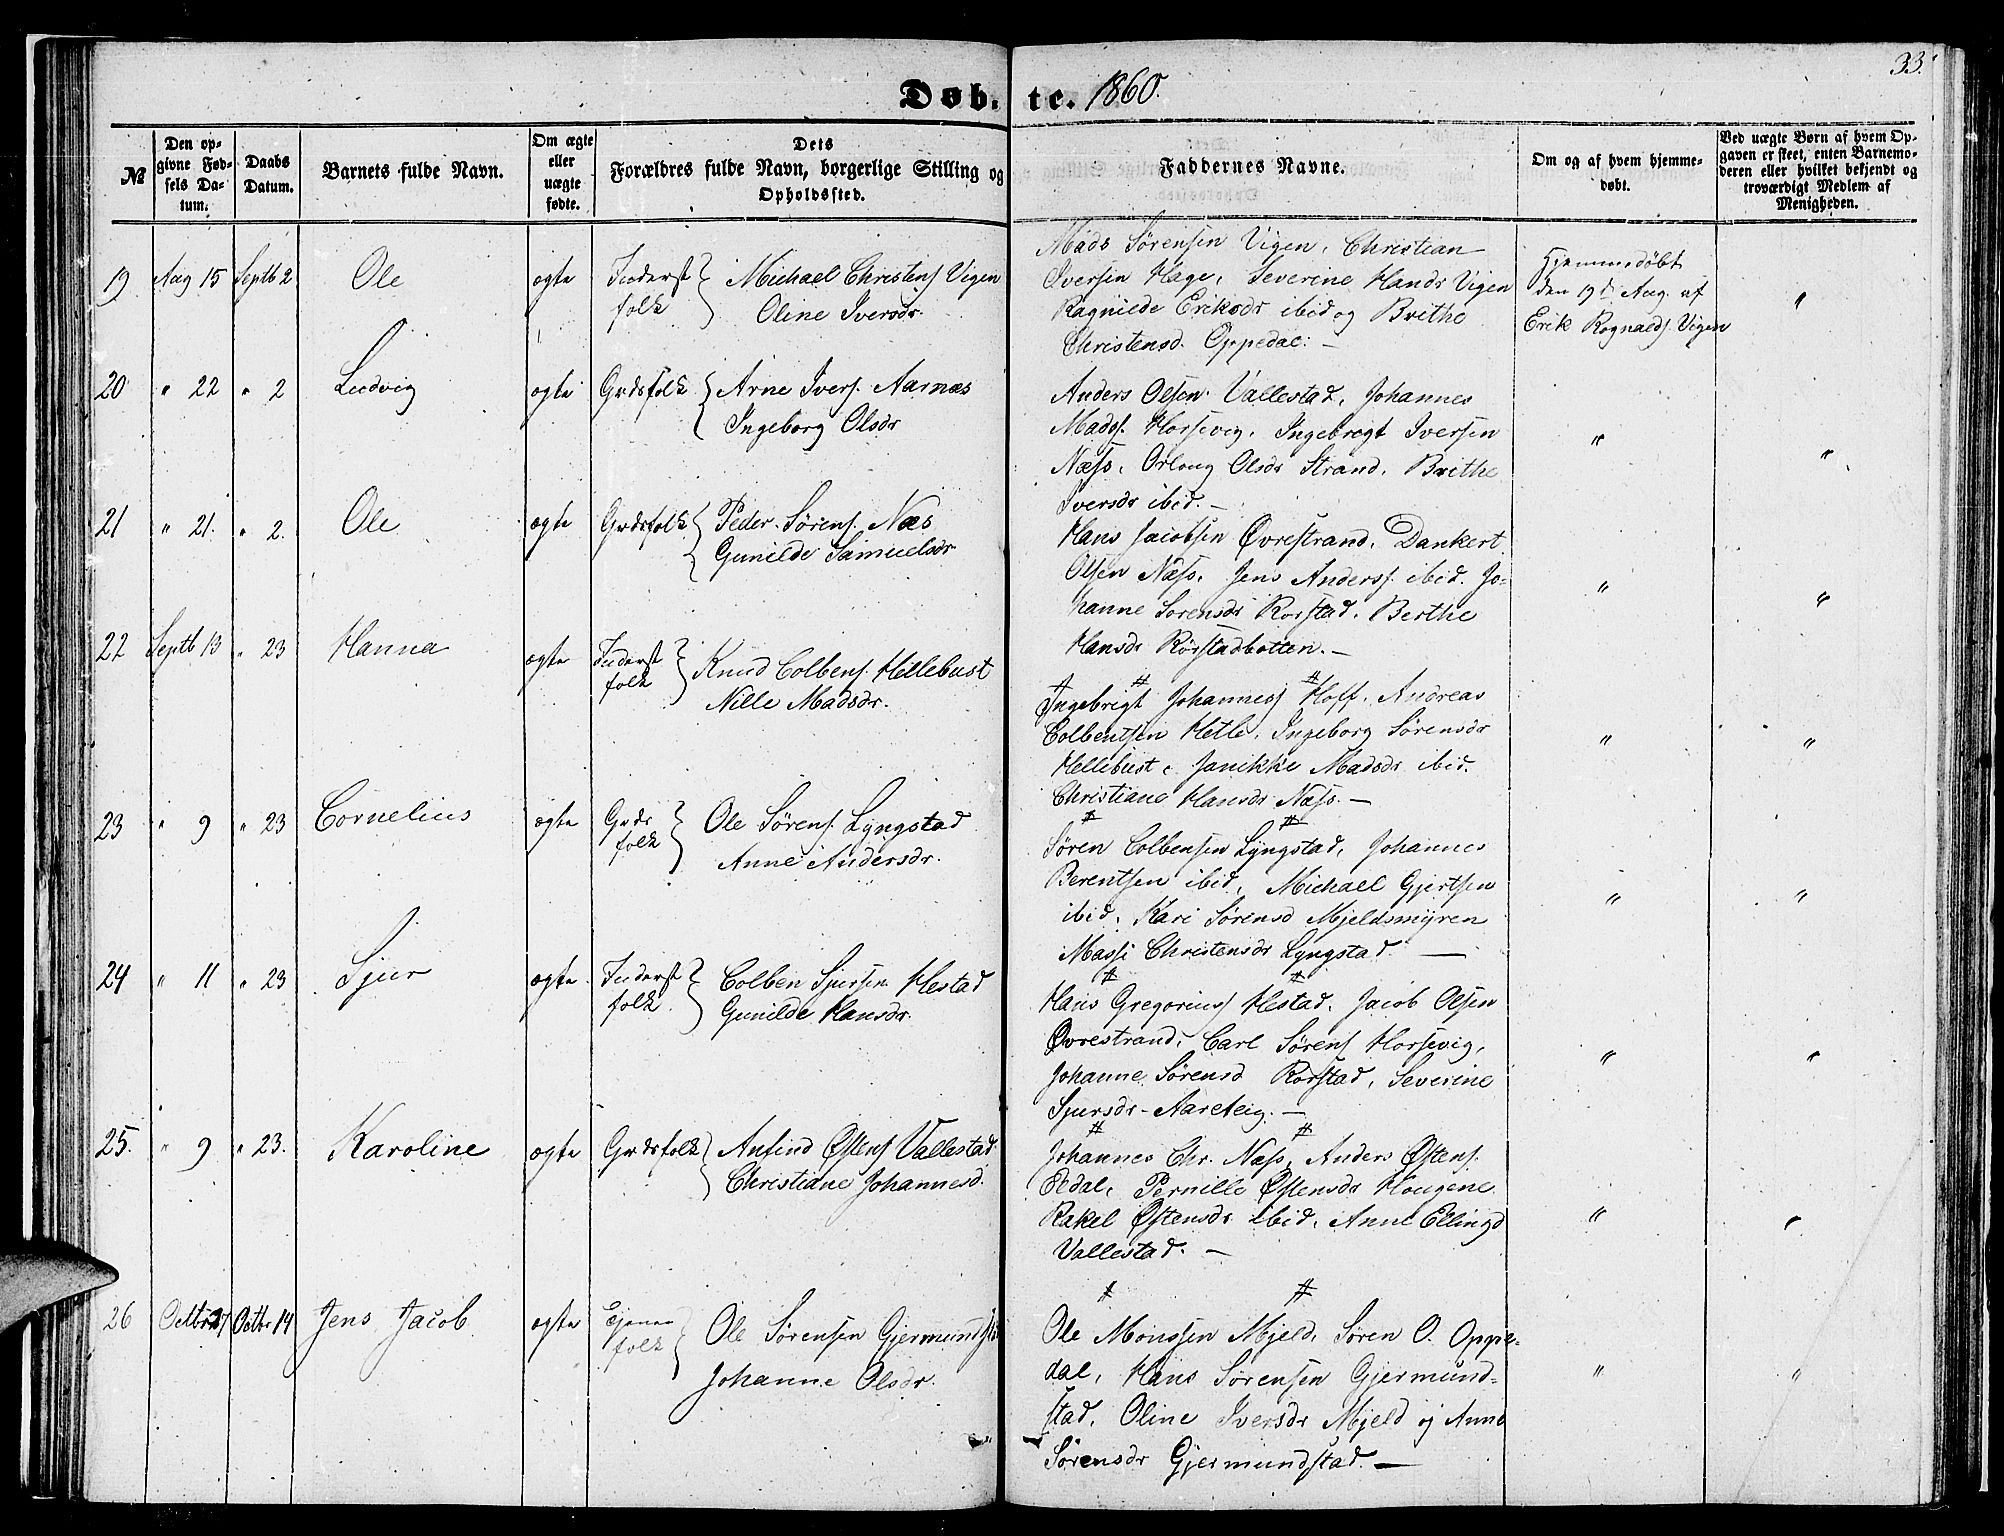 33.
Døb. te. 1860.
№
Den op-
givne Fød-
sels Da-
tum.
Daabs
Datum.
Barnets fulde Navn.
Om ægte
eller
uægte
fødte.
Dets
Forældres fulde Navn, borgerlige Stilling og
Opholdssted.
Faddernes Navne.
Om og af hvem hjemme-
døbt.
Ved uægte Børn af hvem Op-
gaven er skeet, enten Barnemo-
deren eller hvilket bekjendt og
troværdigt Medlem af
Menigheden.
19 Aug 15 Septb 2 Ole ægte Inderst folk { Michael Christens. Vigen
Oline Iversdr.
Mads Sørensen Vigen, Christian
Iversen Hage, Severine Hansdr Vigen
Ragnilde Eriksdr ibid og Brithe
Christensd. Oppedal: —
Hjemmedøbt
den 19de Aug. af
Erik Rognalds. Vigen
"
20 " 22 " 2 Ludvig ægte Grdsfolk { Arne Ivers. Aarnæs
Ingeborg Olsdr
Anders Olsen Vallestad, Johannes
Madss. Horsevig, Ingebregt Iversen
Næss, Orloug Olsdr Strand, Brithe
Iversdr ibid. —
" "
21 " 21. " 2. Ole ægte Grdsfolk { Peder Sørens. Næs
Gunilde Samuelsdr
Hans Jacobsen Øvrestrand, Dankert
Olsen Næss, Jens Anders. ibid. Jo-
hanne Sorensdr Rorstad, Berthe
Hansdr Rørstadbotten. —
" "
22 Septb 13 " 23 Hanna ægte Inderst folk } Knud Colbens. Hellebust
Nille Madsdr.
Ingebrigt Johanness. Hoff, Andreas
Colbentsen Hetle, Ingeborg Sørensdr
Hellebust, Janikke Madsdr ibid.
Christiane Hansdr Næss. —
" "
23 " 9 " 23 Cornelius ægte Grds folk } Ole Sørens. Lyngstad
Anne Andersdr.
Søren Colbensen Lyngstad, Johannes
Berentsen ibid, Michael Gjertsen
ibid, Kari Sørensd Mjeldsmyren
Massi Christensdr Lyngstad. —
" "
24 " 11 " 23 Sjur ægte Inderst folk } Colben Sjursen Hestad
Gunilde Hansdr.
Hans Gregoriuss Hestad, Jacob Olsen
Øvrestrand, Carl Sørens Horsevig,
Johanne Sørensd Rorstad, Severine
Sjursdr Aarèteig. —
" "
25. " 9 " 23. Karoline ægte Grdsfolk } Anfind Østens Vallestad.
Christiane Johannesd.
Johannes Chr. Næss, Anders Østens.
Eldal, Pernille Østensdr Hougene
Rakel Østensdr ibid, Anne Ellingd
Vallestad. —
" "
26 Octbr Octbr 14 Jens Jacob ægte Ejene folk } Ole Sørensen Gjermundsta
Johanne Olsdr.
Ole Monssen Mjeld, Søren O. Oppe-
dal, Hans Sørensen Gjermund-
stad, Oline Iversdr Mjeld og Anne
Sørensdr Gjermundstad. —
" "